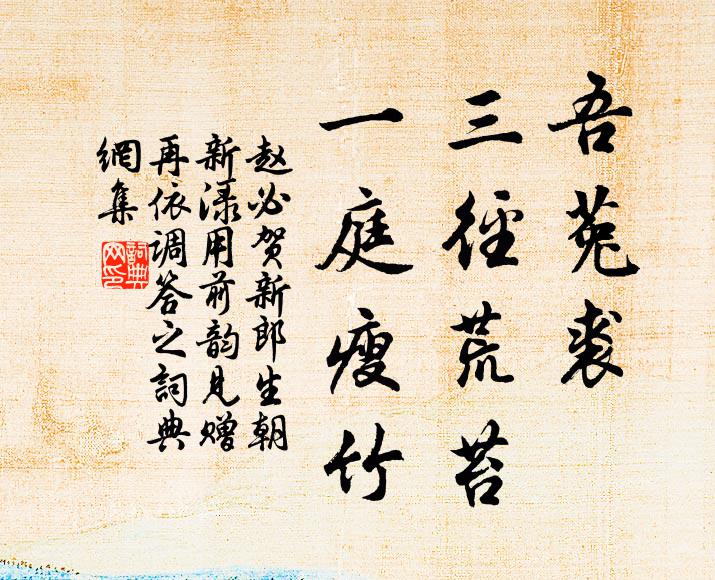 吾菟裘
三徑荒苔
一庭瘦竹
赵必贺新郎生朝
新渌用前韵見赠
再依调答之詞典
網集
詞典
网印